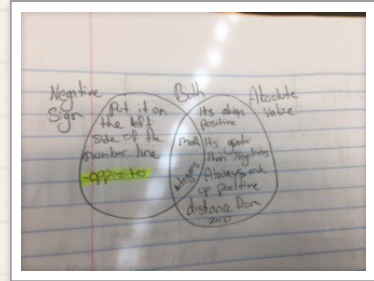 Negative
Sign
Both
Absolute
Value
Put it on
the left
side of the
number line
-opposites
math
integers
Its always
positive
Its greater
than negatives
Always end
up positive
distance from
zero